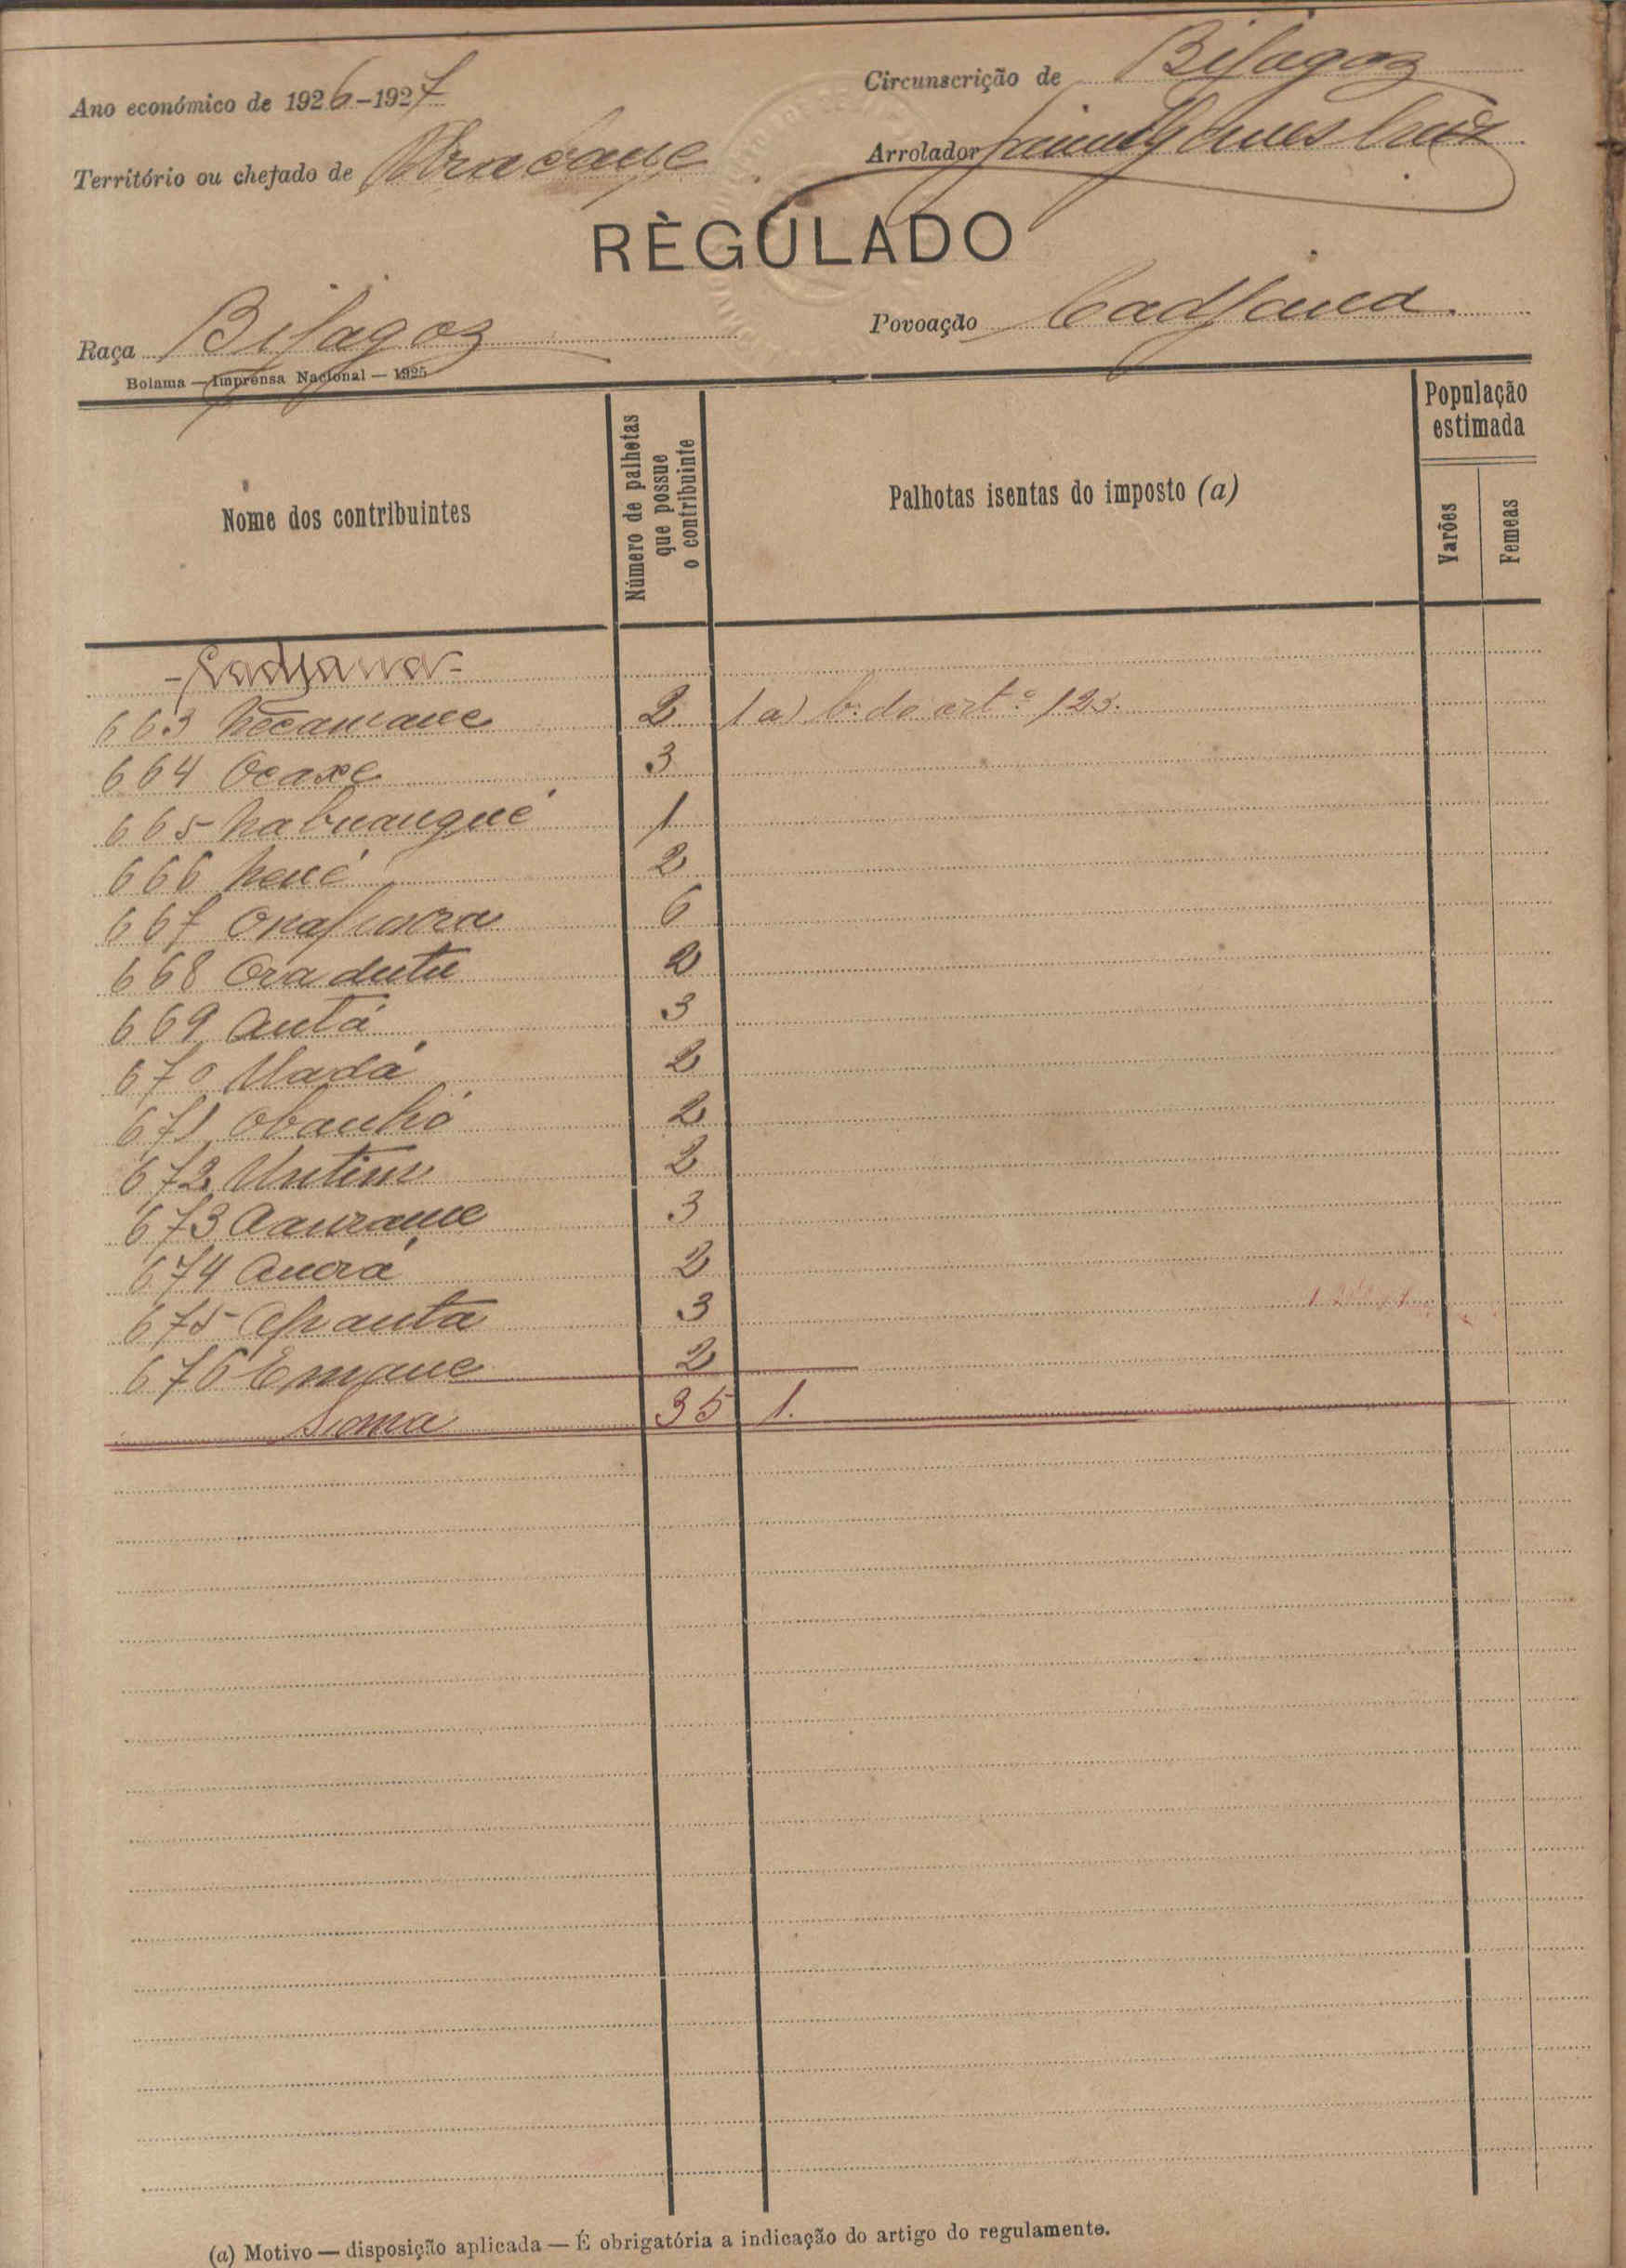 Ano económico de 1926-1927
Circunscrição de Bijagoz
Território ou chefado de
Arrolador
RÈGULADO
Raça Bijagoz
Povoação Cadjana
Bolama — Imprensa Nacional — 1925
Nome dos contribuintes
Número de palhotas que possue o contribuinte
Palhotas isentas do imposto (a)
População estimada
Varões
Femeas
- Cadjana -
663 2 1 a) b. do artº 123.
664 Ocaxe 3
665 Nabuangué 1
666 Nené 2
667 6
668 Oradutu 2
669 Antá 3
670 Madá 2
671 Obanhó 2
672 Untim 2
673 3
674 2
675 3
676 2
Soma 35 1.
(a) Motivo — disposição aplicada — É obrigatória a indicação do artigo do regulamento.